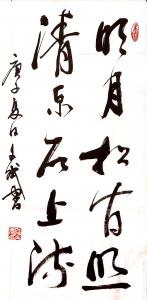 明月松间照
清泉石上流
庚子夏日
書